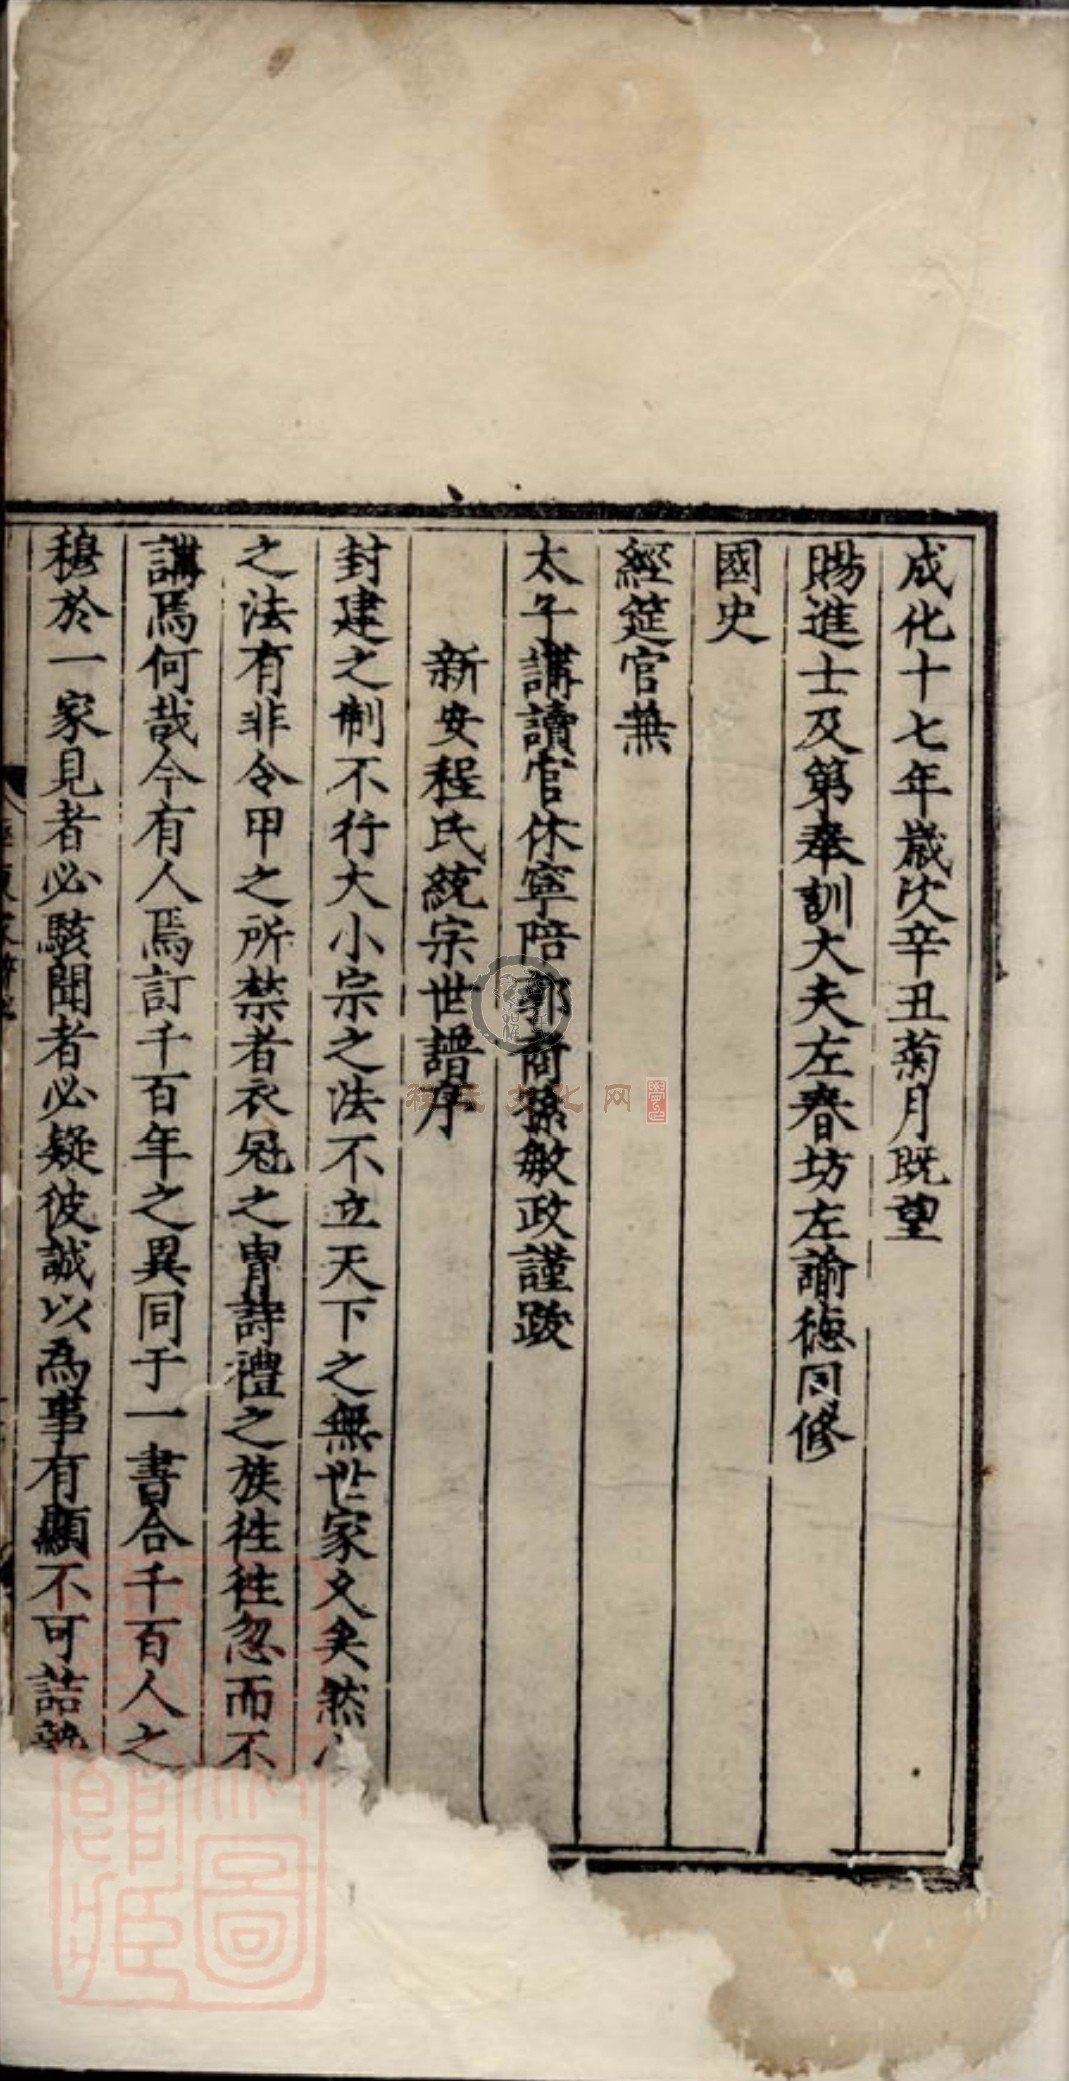 成化十七年歲次辛丑菊月既望
賜進士及第奉訓大夫左春坊左諭德同修
國史
經筵官兼
太子講讀官休寧陪郭裔孫敏政謹跋
新安程氏統宗世譜序
封建之制不行大小宗之法不立天下之無世家久矣然
之法有非令甲之所禁者衣冠之胄詩禮之族徃徃忽而不
講焉何哉今有人焉訂千百年之異同于一書合千百人之
穆於一家見者必駭聞者必疑彼誠以為事有顯不可詰
程氏文化网